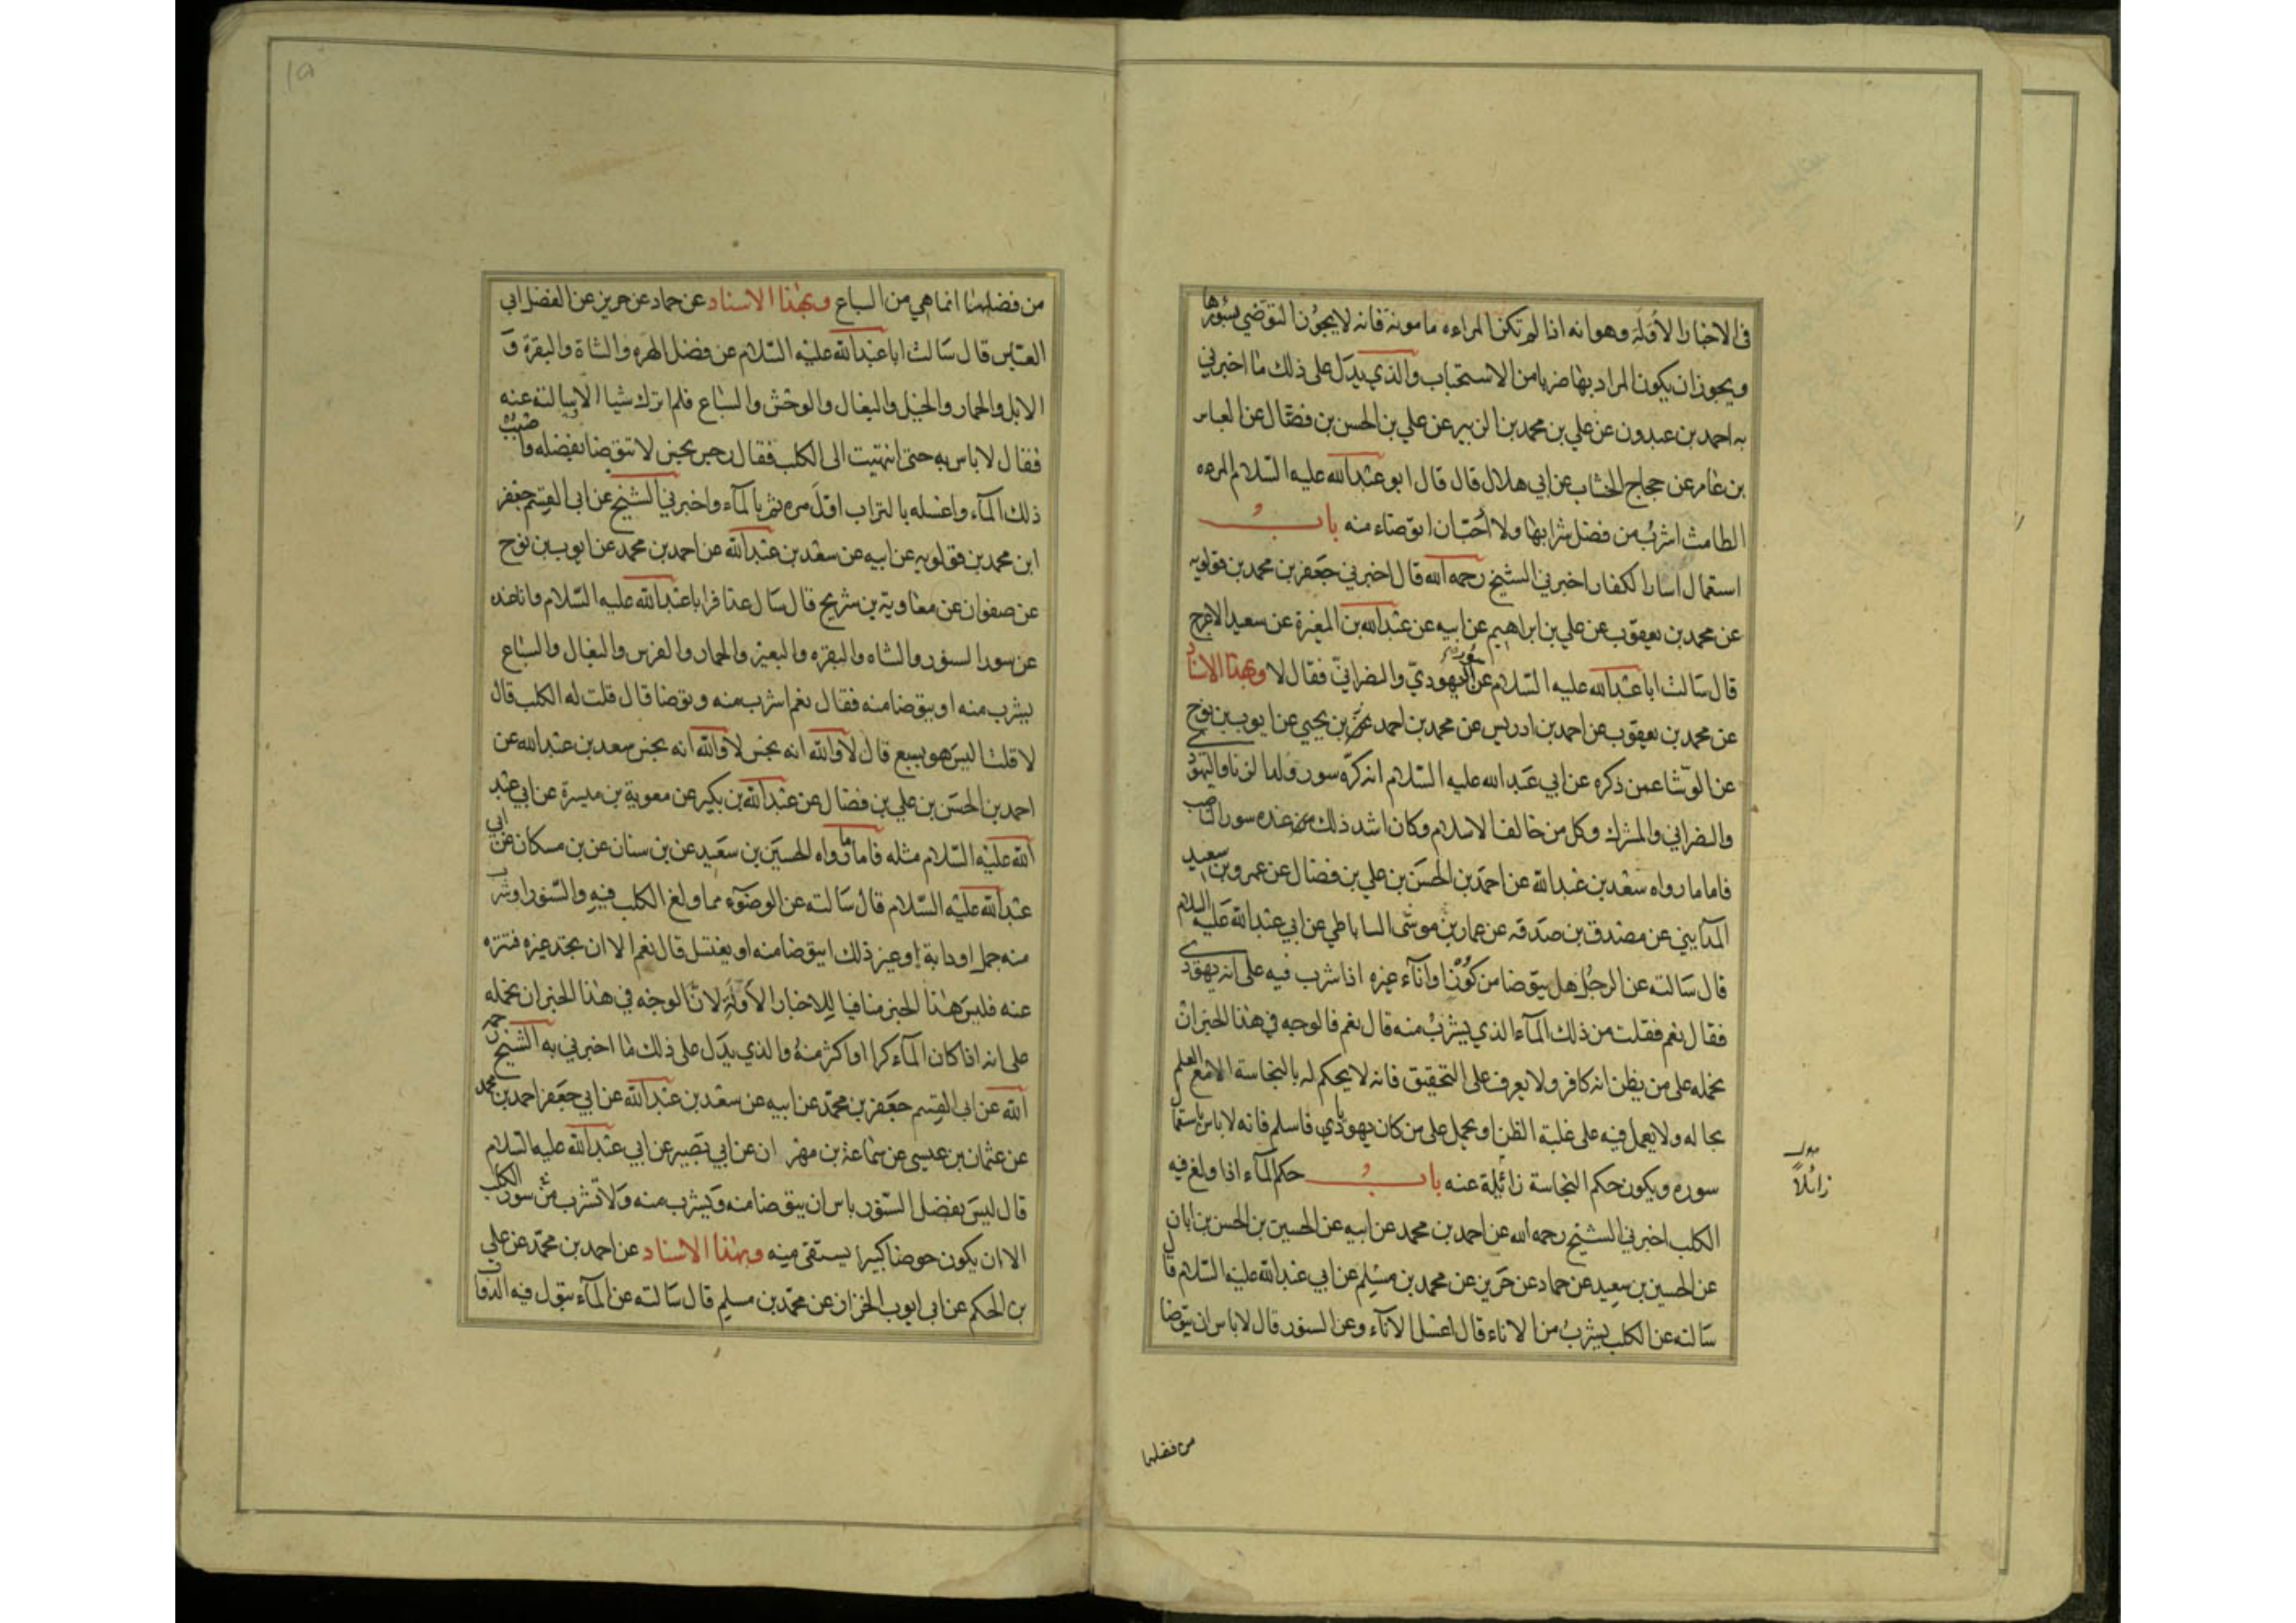 في الاخبار الأولة وهو انه اذا لم تكن المراءه مامونة فانه لا يجوز التوضي بسورها
ويجوز ان يكون المراد بها ضربا من الاستحباب والذي يدل على ذلك ما اخبرني
به احمد بن عبدون عن علي بن محمد بن الزبير عن علي بن الحسن بن فضال عن العباس
بن عامر عن حجاج الخشاب عن ابي هلال قال قال ابو عبد الله عليه السلام المرءه
الطامث اشرب من فضل شرابها ولا احب ان اتوضاء منه باب
استعمال اسار الكفار اخبرني الشيخ رحمه الله قال اخبرني جعفر بن محمد بن قولويه
عن محمد بن يعقوب عن علي بن ابراهيم عن ابيه عن عبد الله بن المغيرة عن سعيد الاعرج
قال سالت ابا عبد الله عليه السلام عن سور اليهودي والنصراني فقال لا وبهذا الاسناد
عن محمد بن يعقوب عن احمد بن ادريس عن محمد بن احمد بن يحيى عن ايوب بن نوح
عن الوشا عمن ذكره عن ابي عبد الله عليه السلام انه كره سور ولد الزنا واليهودي
والنصراني والمشرك وكل من خالف الاسلام وكان اشد ذلك عنده سور الناصب
فاما ما رواه سعد بن عبد الله عن احمد بن الحسن بن علي بن فضال عن عمرو بن سعيد
المدايني عن مصدق بن صدقه عن عمار بن موسى الساباطي عن ابي عبد الله عليه السلام
قال سالته عن الرجل هل يتوضا من كوز او اناء غيره اذا شرب فيه على انه يهودي
فقال نعم فقلت من ذلك الماء الذي يشرب منه قال نعم فالوجه في هذا الخبر ان
نحمله على من يظن انه كافر ولا يعرف على التحقيق فانه لا يحكم له بالنجاسة الا مع العلم
بحاله ولا يعمل فيه على غلبة الظن او يحمل على من كان يهوديا فاسلم فانه لا باس باستعمال
سوره ويكون حكم النجاسة زائلة عنه باب حكم الماء اذا ولغ فيه
زائلاً
الكلب اخبرني الشيخ رحمه الله عن احمد بن محمد عن ابيه عن الحسين بن الحسن بن ابان
عن الحسين بن سعيد عن حماد عن حريز عن محمد بن مسلم عن ابي عبد الله عليه السلام قال
سالته عن الكلب يشرب من الاناء قال اغسل الاناء وعن السنور قال لا باس ان يتوضا
من فضلها
من فضلها انما هي من السباع وبهذا الاسناد عن حماد عن حريز عن الفضل ابي
العباس قال سالت ابا عبد الله عليه السلام عن فضل الهره والشاة والبقرة و
الابل والحمار والخيل والبغال والوحش والسباع فلم اترك شيا الا سالته عنه
فقال لا باس به حتى انتهيت الى الكلب فقال رجس نجس لا تتوضا بفضله واصبب
ذلك الماء واغسله بالتراب اول مره ثم بالماء واخبرني الشيخ عن ابي القسم جعفر
ابن محمد بن قولويه عن ابيه عن سعد بن عبد الله عن احمد بن محمد عن ايوب بن نوح
عن صفوان عن معاوية بن شريح قال سال عذافر ابا عبد الله عليه السلام وانا عنده
عن سور السنور والشاه والبقره والبعير والحمار والفرس والبغال والسباع
يشرب منه او يتوضا منه فقال نعم اشرب منه وتوضا قال قلت له الكلب قال
لا قلت اليس هو بسبع قال لا والله انه نجس لا والله انه نجس سعد بن عبد الله عن
احمد بن الحسن بن علي بن فضال عن عبد الله بن بكير عن معوية بن ميسرة عن ابي عبد
الله عليه السلام مثله فاما ما رواه الحسين بن سعيد عن بن سنان عن بن مسكان عن ابي
عبد الله عليه السلام قال سالته عن الوضوء مما ولغ الكلب فيه والسنور او شرب
منه جمل او دابة او غير ذلك ايتوضا منه او يغتسل قال نعم الا ان تجد غيره فتنزه
عنه فليس هذا الخبر منافيا للاخبار الأولة لان الوجه في هذا الخبر ان نحمله
على انه اذا كان الماء كرا او اكثر منه والذي يدل على ذلك ما اخبرني به الشيخ رحمه
الله عن ابي القسم جعفر بن محمد عن ابيه عن سعد بن عبد الله عن ابي جعفر احمد بن محمد
عن عثمان بن عيسى عن سماعة بن مهران عن ابي بصير عن ابي عبد الله عليه السلام
قال ليس بفضل السنور باس ان يتوضا منه ويشرب منه ولا تشرب من سور الكلب
الا ان يكون حوضا كبيرا يستقى منه وبهذا الاسناد عن احمد بن محمد عن علي
بن الحكم عن ابي ايوب الخزاز عن محمد بن مسلم قال سالته عن الماء تبول فيه الدواب